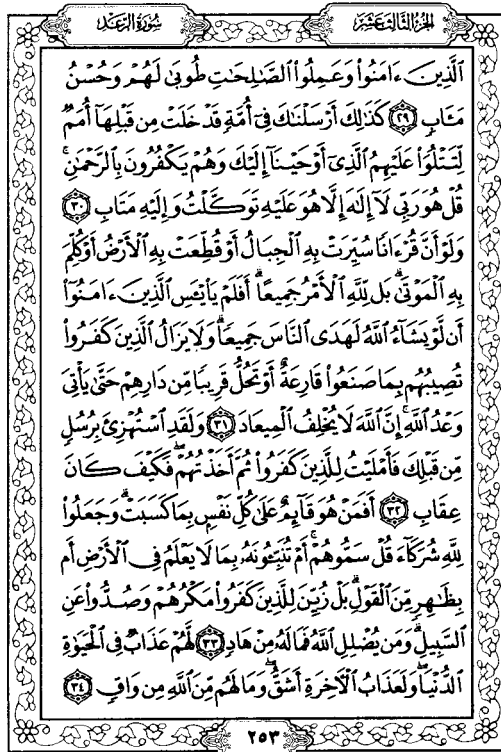 الجزء الثالث عشر
سورة الرعد
الَّذِينَ ءَامَنُوا۟ وَعَمِلُوا۟ الصَّٰلِحَٰتِ طُوبَىٰ لَهُمْ وَحُسْنُ
مَـَٔابٍ ٢٩ كَذَٰلِكَ أَرْسَلْنَٰكَ فِىٓ أُمَّةٍ قَدْ خَلَتْ مِن قَبْلِهَآ أُمَمٌ
لِّتَتْلُوَا۟ عَلَيْهِمُ الَّذِىٓ أَوْحَيْنَآ إِلَيْكَ وَهُمْ يَكْفُرُونَ بِالرَّحْمَٰنِ ۚ
قُلْ هُوَ رَبِّى لَآ إِلَٰهَ إِلَّا هُوَ عَلَيْهِ تَوَكَّلْتُ وَإِلَيْهِ مَتَابِ ٣٠
وَلَوْ أَنَّ قُرْءَانًا سُيِّرَتْ بِهِ الْجِبَالُ أَوْ قُطِّعَتْ بِهِ الْأَرْضُ أَوْ كُلِّمَ
بِهِ الْمَوْتَىٰ ۗ بَل لِّلَّهِ الْأَمْرُ جَمِيعًا ۗ أَفَلَمْ يَا۟يْـَٔسِ الَّذِينَ ءَامَنُوٓا۟
أَن لَّوْ يَشَآءُ اللَّهُ لَهَدَى النَّاسَ جَمِيعًا ۗ وَلَا يَزَالُ الَّذِينَ كَفَرُوا۟
تُصِيبُهُم بِمَا صَنَعُوا۟ قَارِعَةٌ أَوْ تَحُلُّ قَرِيبًا مِّن دَارِهِمْ حَتَّىٰ يَأْتِىَ
وَعْدُ اللَّهِ ۚ إِنَّ اللَّهَ لَا يُخْلِفُ الْمِيعَادَ ٣١ وَلَقَدِ اسْتُهْزِئَ بِرُسُلٍ
مِّن قَبْلِكَ فَأَمْلَيْتُ لِلَّذِينَ كَفَرُوا۟ ثُمَّ أَخَذْتُهُمْ ۖ فَكَيْفَ كَانَ
عِقَابِ ٣٢ أَفَمَنْ هُوَ قَآئِمٌ عَلَىٰ كُلِّ نَفْسٍۭ بِمَا كَسَبَتْ ۗ وَجَعَلُوا۟
لِلَّهِ شُرَكَآءَ قُلْ سَمُّوهُمْ ۚ أَمْ تُنَبِّـُٔونَهُۥ بِمَا لَا يَعْلَمُ فِى الْأَرْضِ أَم
بِظَٰهِرٍ مِّنَ الْقَوْلِ ۗ بَلْ زُيِّنَ لِلَّذِينَ كَفَرُوا۟ مَكْرُهُمْ وَصُدُّوا۟ عَنِ
السَّبِيلِ ۗ وَمَن يُضْلِلِ اللَّهُ فَمَا لَهُۥ مِنْ هَادٍ ٣٣ لَّهُمْ عَذَابٌ فِى الْحَيَوٰةِ
الدُّنْيَا ۖ وَلَعَذَابُ الْءَاخِرَةِ أَشَقُّ ۖ وَمَا لَهُم مِّنَ اللَّهِ مِن وَاقٍ ٣٤
٢٥٣